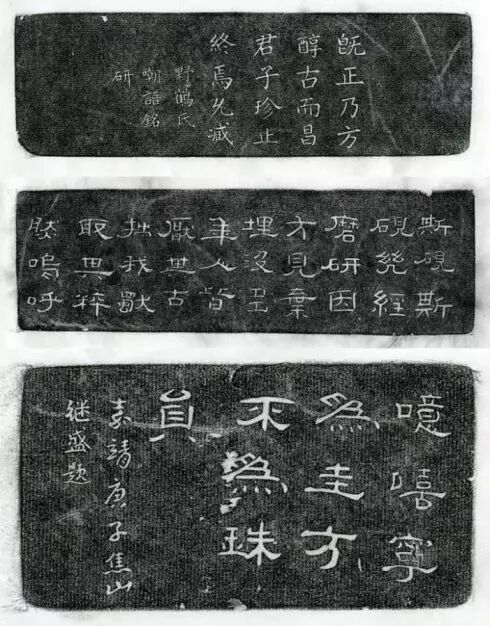 既正乃方
醇古而昌
君子珍止
終焉允臧
野鶴氏
嘲語銘
研
斯硯斯
硯幾經
磨研因
方見棄
埋沒
年人皆
厭其古
拙我獸
取其粹
肰嗚呼
噫嘻寧
為圭方
不為珠
員
嘉靖庚子焦山
继盛題